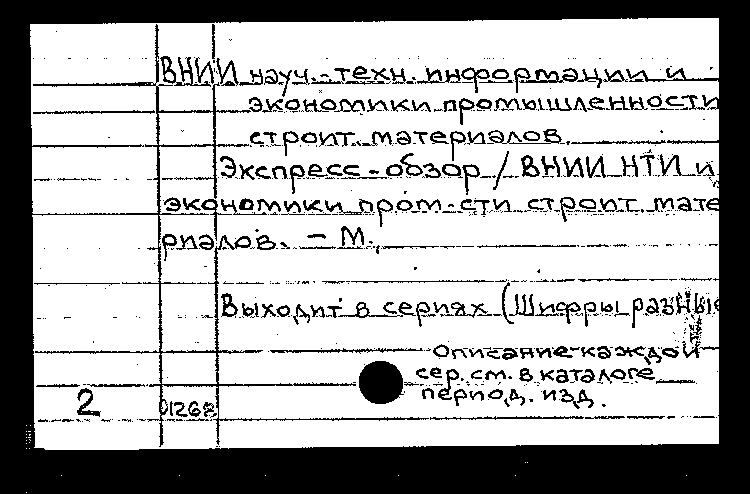 ВНИИ науч.-техн. информации и
экономики промышленности
строит. материалов.
Экспресс-обзор / ВНИИ НТИ и
экономики пром-сти строит. мате
риалов. – М.,
Выходит в сериях (Шифры разные
Описание каждой
сер. см. в каталоге
период. изд.
2
01268